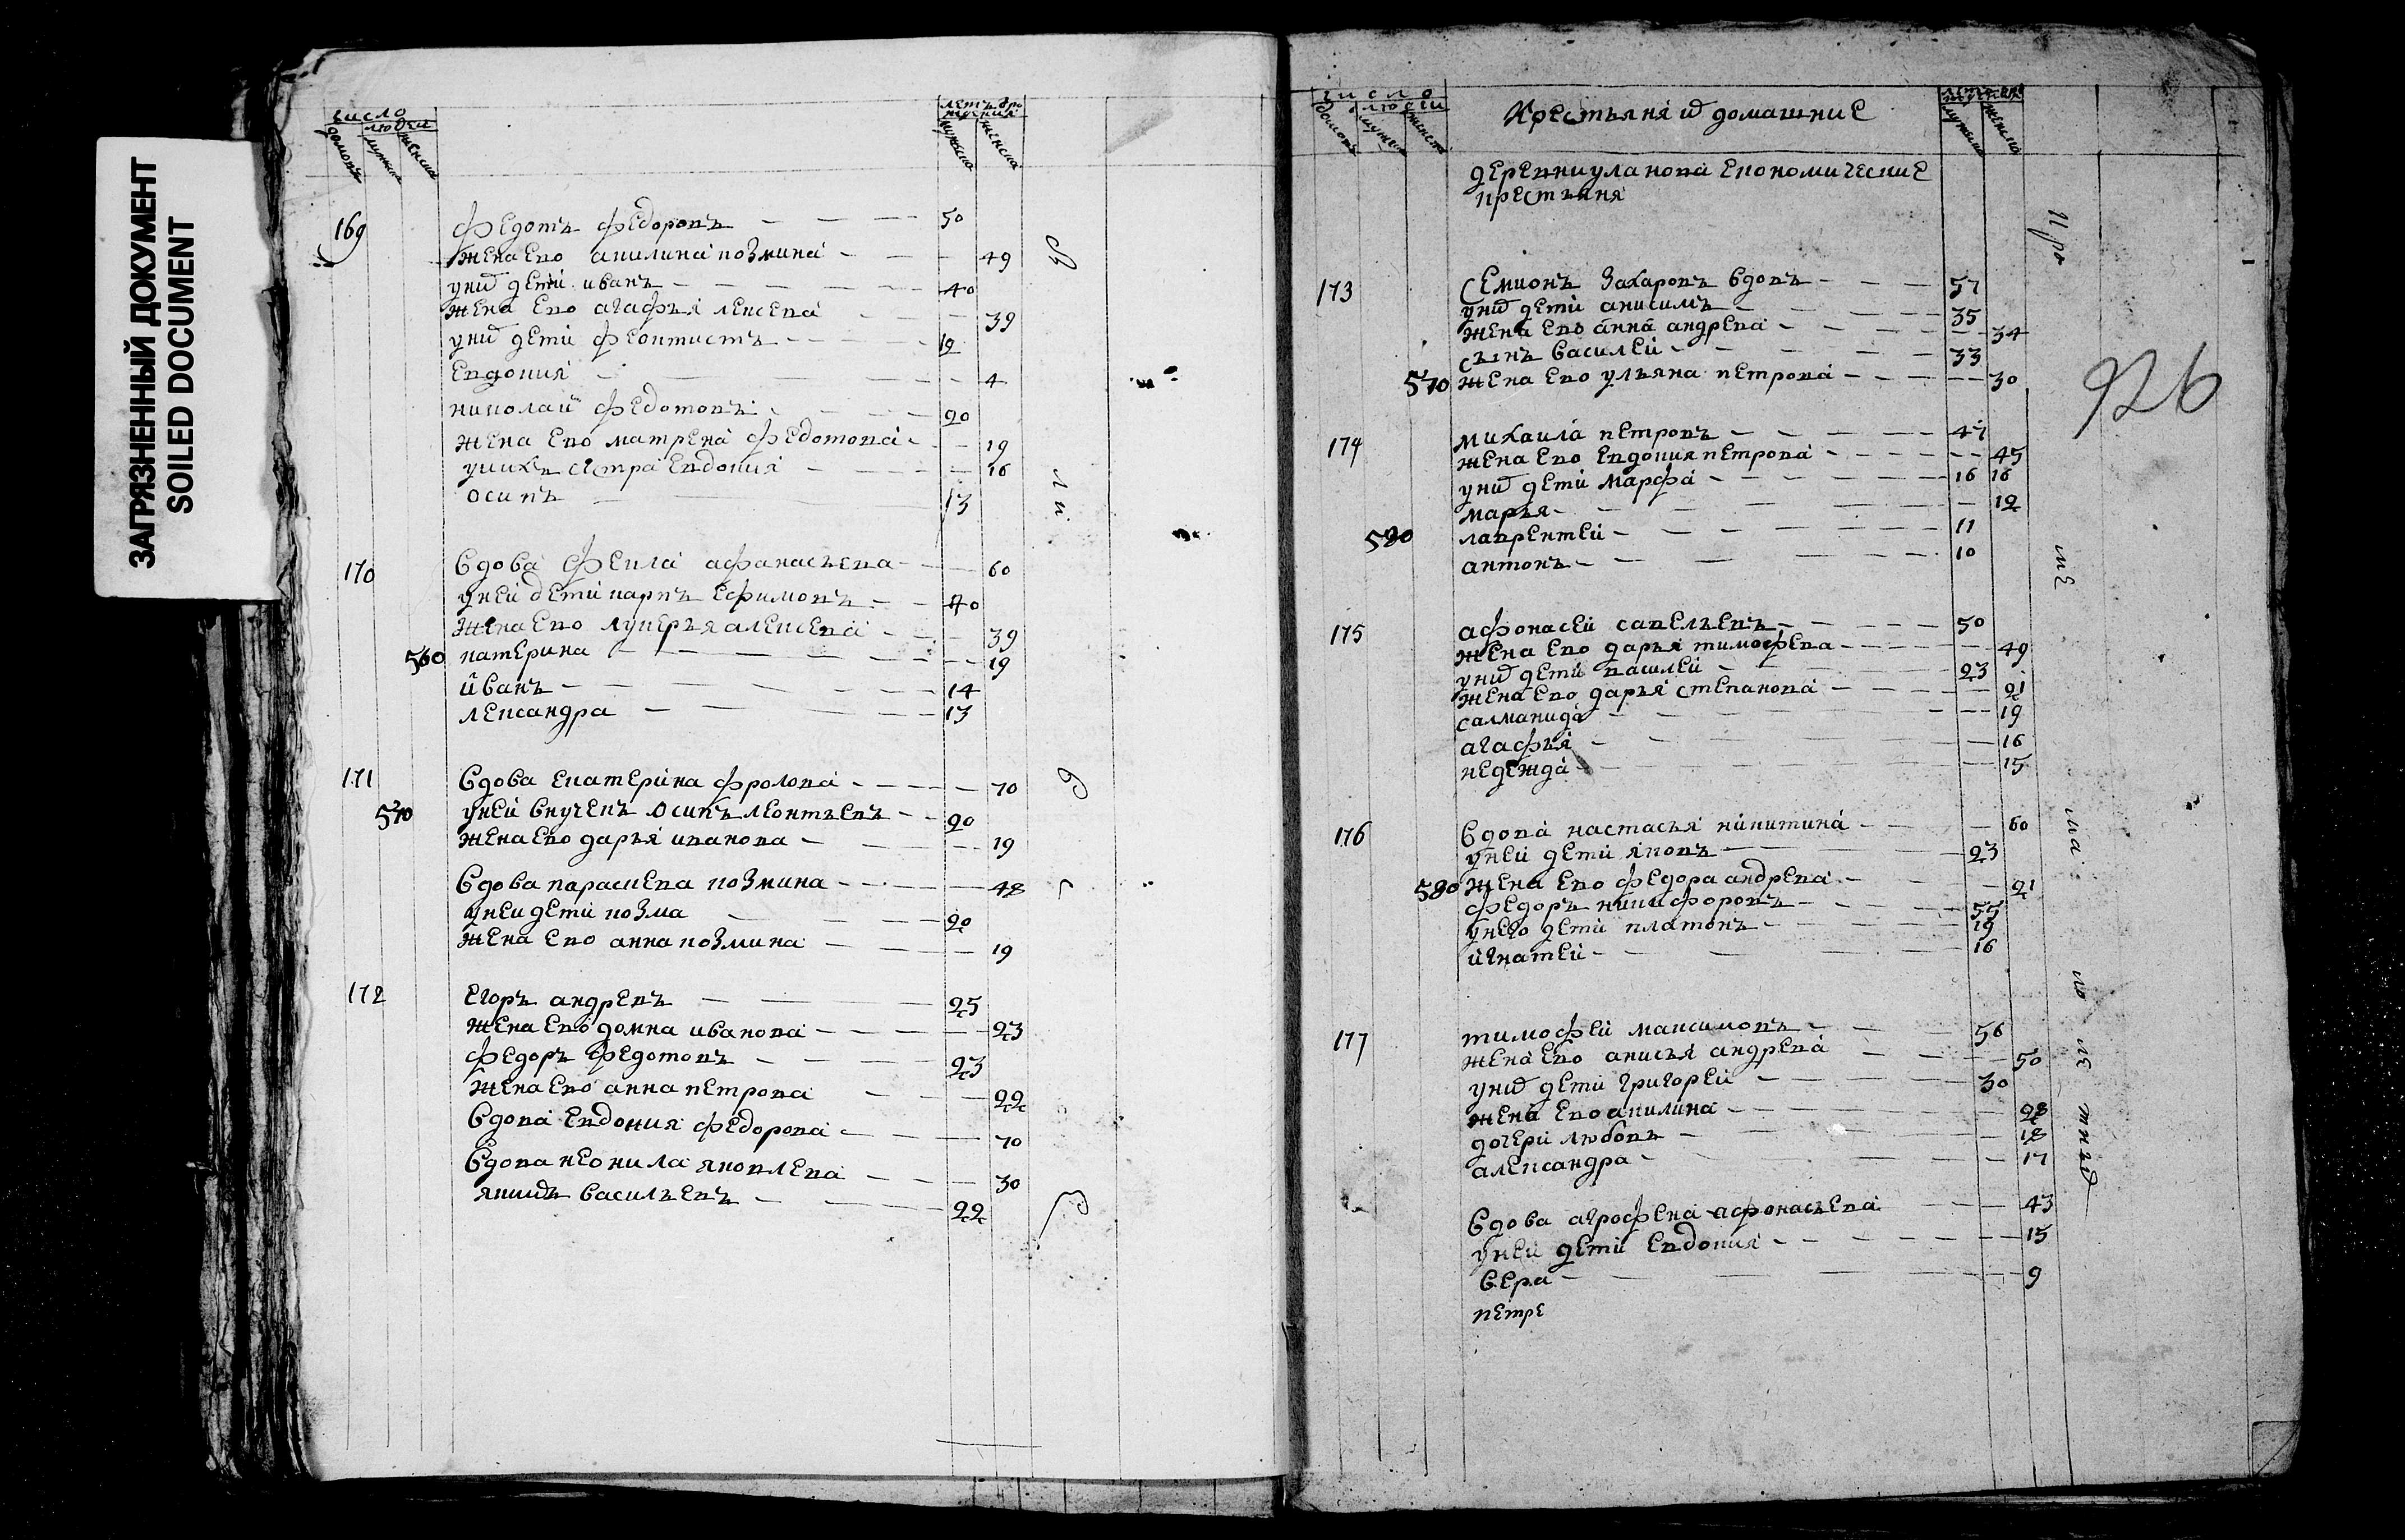 ЗАГРЯЗНЕННЫЙ ДОКУМЕНТ
SOILED DOCUMENT
число
людей
домовъ мужска женска
летъ от ро
ждения
мужска женска
169 федотъ федоровъ 50
жена ево акилина козмина 49
унихъ дети иванъ 40
жена ево агафья лексева 39
унихъ дети феоктистъ 19
Евдокия 4
николай федотовъ 20
жена ево матрена федотова 19
унихъ сестра Евдокия 16
осипъ 13
170 вдова фекла афанасьева 60
уней дети карпъ Ефимовъ 40
жена ево лукерья алексева 39
560 катерина 19
иванъ 14
лександра 13
171 вдова Екатерина фролова 70
570 уней внучекъ осипъ леонтьевъ 20
жена ево дарья иванова 19
вдова парасиева козмина 48
уней дети козма 20
жена ево анна козмина 19
172 Егоръ андревъ 25
жена ево домна иванова 23
федоръ федотовъ 23
жена ево анна петрова 22
вдова Евдокия федорова 70
вдова неонила яковлева 30
якимъ васильевъ 22
число
людей
домовъ мужска женска
Крестьяня и домашние
мужска женска
деревни уланова Економические
крестьяня
926
173 семионъ захаровъ вдовъ 57
унихъ дети анисимъ 35
жена ево анна андрева 34
сынъ василей 33
570 жена ево ульяна петрова 30
174 михаила петровъ 47
жена ево Евдокия петрова 45
унихъ дети марфа 16 16
марья 12
580 лаврентей 11
антонъ 10
175 афонасей савельевъ 50
жена ево дарья тимофева 49
унихъ дети василей 23
жена ево дарья степанова 21
салманида 19
агафья 16
надежда 15
176 вдова настасья никитина 60
уней дети яковъ 23
580 жена ево федора андрева 21
федоръ никифоровъ 55
унего дети платонъ 19
игнатей 16
177 тимофей максимовъ 56
жена ево анисья андрева 50
унихъ дети григорей 30
жена ево акилина 28
дочери любовь 18
александра 17
вдова агрофена афонасьева 43
уней дети Евдокия 15
вера 9
петре